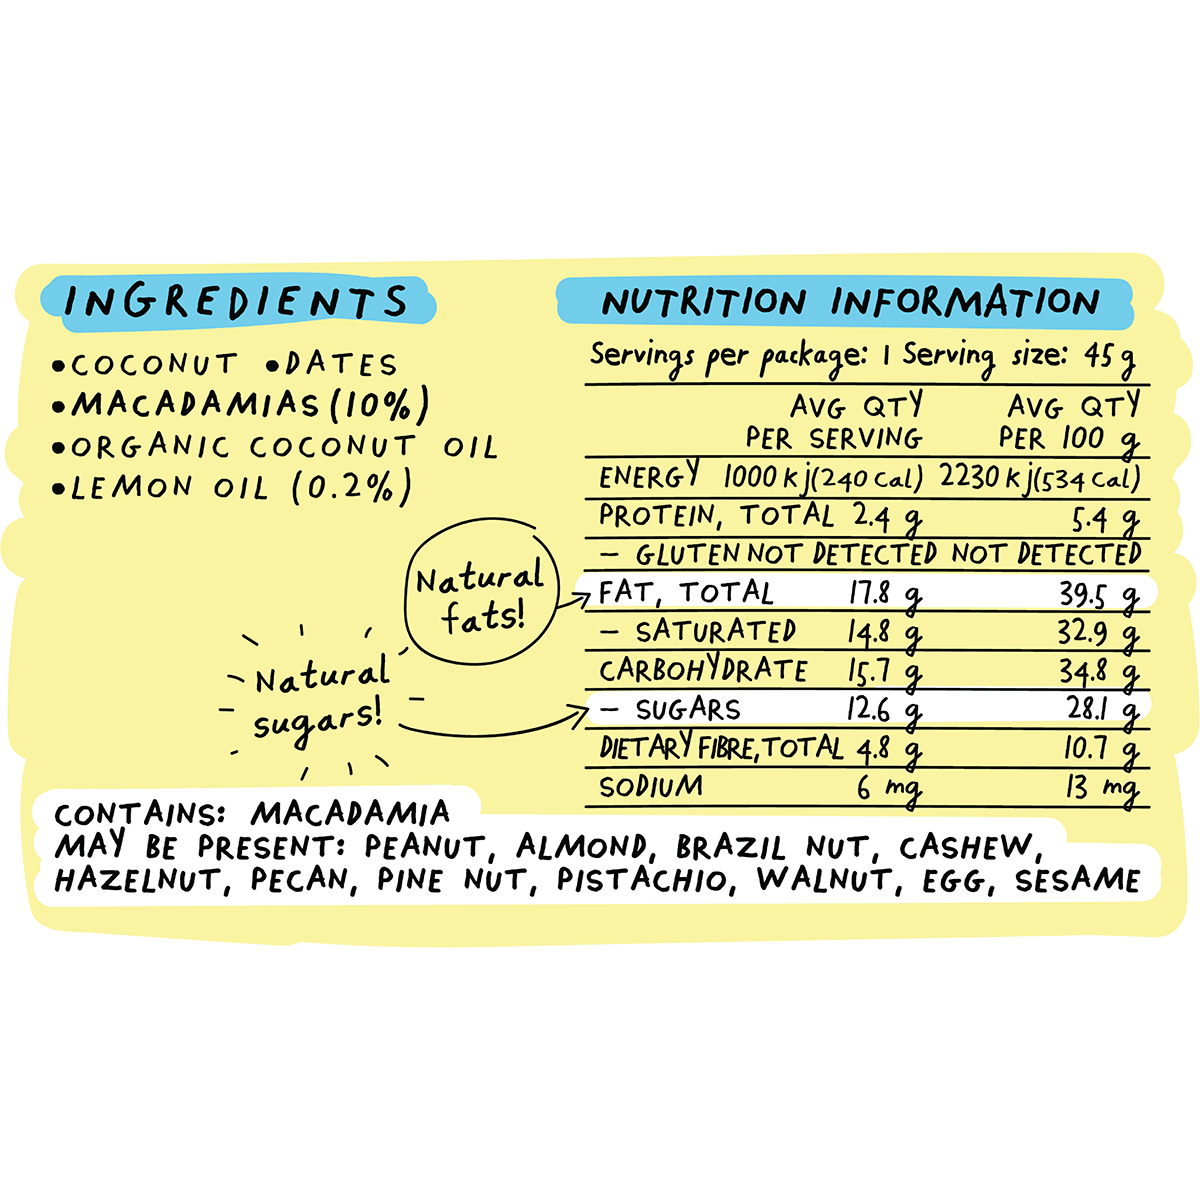 INGREDIENTS
•COCONUT •DATES
•MACADAMIAS (10%)
•ORGANIC COCONUT OIL
•LEMON OIL (0.2%)
Natural
fats!
Natural
sugars!
NUTRITION INFORMATION
Servings per package: 1 Serving size: 45 g
AVG QTY AVG QTY
PER SERVING PER 100 g
ENERGY 1000 kj(240 Cal) 2230 kj(534 Cal)
PROTEIN, TOTAL 2.4 g 5.4 g
– GLUTEN NOT DETECTED NOT DETECTED
FAT, TOTAL 17.8 g 39.5 g
– SATURATED 14.8 g 32.9 g
CARBOHYDRATE 15.7 g 34.8 g
– SUGARS 12.6 g 28.1 g
DIETARY FIBRE, TOTAL 4.8 g 10.7 g
SODIUM 6 mg 13 mg
CONTAINS: MACADAMIA
MAY BE PRESENT: PEANUT, ALMOND, BRAZIL NUT, CASHEW,
HAZELNUT, PECAN, PINE NUT, PISTACHIO, WALNUT, EGG, SESAME